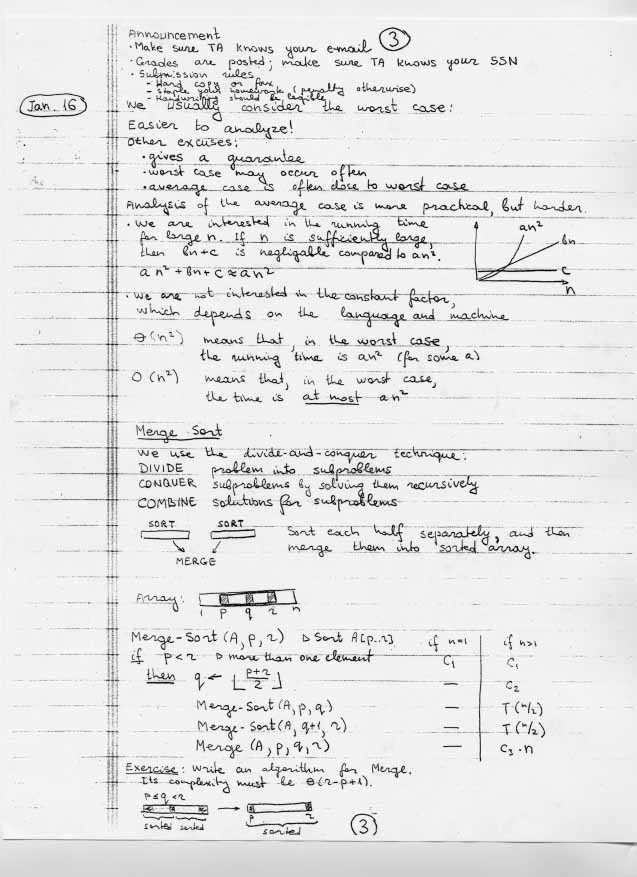 Announcement
③
· Make sure TA knows your e-mail
· Grades are posted; make sure TA knows your SSN
· Submission rules
- Hard copy or fax
- Staple your homework (penalty otherwise)
- Handwriting should be legible
Jan. 16
We usually consider the worst case:
Easier to analyze!
Other excuses:
· gives a guarantee
· worst case may occur often
· average case is often close to worst case
Analysis of the average case is more practical, but harder.
· We are interested in the running time
for large n. If n is sufficiently large,
then bn+c is negligable compared to an².
an² + bn + c ≈ an²
an²
bn
c
n
· We are not interested in the constant factor,
which depends on the language and machine
Θ(n²) means that, in the worst case,
the running time is an² (for some a)
O(n²) means that, in the worst case,
the time is at most an²
Merge Sort
We use the divide-and-conquer technique:
DIVIDE problem into subproblems
CONQUER subproblems by solving them recursively
COMBINE solutions for subproblems
SORT SORT
MERGE
Sort each half separately, and then
merge them into sorted array.
Array:
1 p q r n
Merge-Sort (A, p, r) ▷ Sort A[p..r] if n=1 if n>1
if p < r ▷ more than one element C₁ C₁
then q ← ⌊(p+r)/2⌋ — C₂
Merge-Sort (A, p, q) — T(n/2)
Merge-Sort (A, q+1, r) — T(n/2)
Merge (A, p, q, r) — C₃·n
Exercise: Write an algorithm for Merge.
Its complexity must be Θ(r-p+1).
p ≤ q < r
sorted sorted
p r
sorted
③